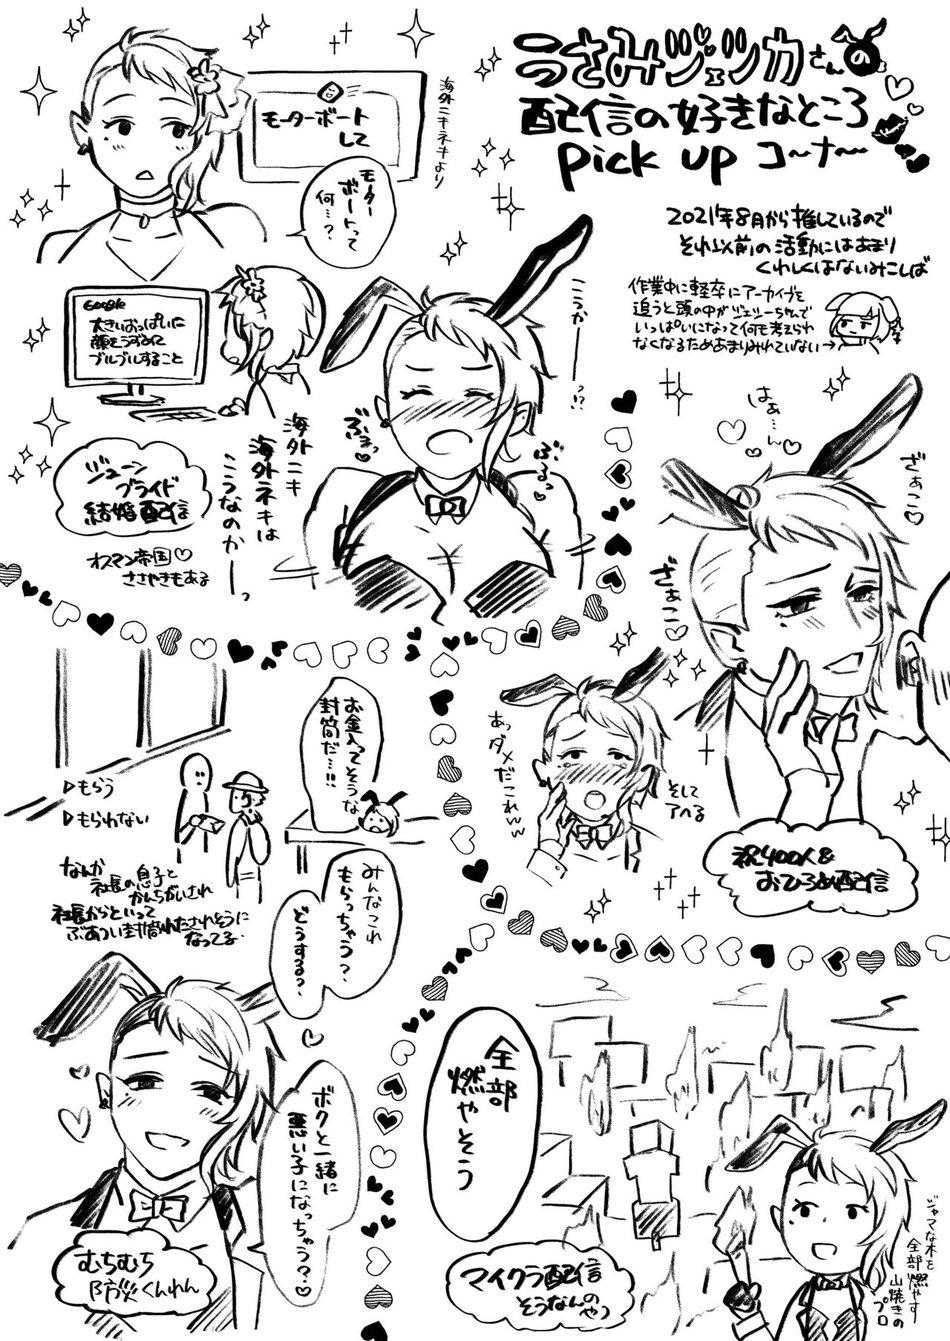 うさみヅェッカさんの
配信の好きなところ
pick up コ〜ナ〜
2021年8月から推しているので
それ以前の活動にはあまり
くわしくはないみこしば
作業中に軽率にアーカイブを
追うと頭の中がヅェッちゃんで
いっぱいになって何も考えられ
なくなるためあまりみれていない→
海外ニキネキより
モーターボート
して
モーター
ボートって
何…?
Google
大きいおっぱいに
顔をうずめて
ブルブルすること
こうか――!?
ぶるっ
ぶるっ
海外ニキ
海外ネキは
こうなのか――っ
ジューン
ブライド
結婚配信
オスマン帝国♡
ささやきもある
はぁ…ん♡
ざぁこ♡
ざぁこ♡
あっダメだこれww
そして
アヘる
祝400人&
おひろめ配信
▷もらう
▷もらわない
お金入ってそうな
封筒だ…!!
なんか
社長の息子と
かんちがいされ
社長からといって
ぶあつい封筒わたされそうに
なってる
みんなこれ
もらっちゃう?
どうする?
ボクと一緒に
悪い子になっちゃう?♡
むちむち
防災くんれん
全部
燃やそう
マイクラ配信
そうなんのやつ
ジャマな木を
全部燃やす
山焼きの
プロ